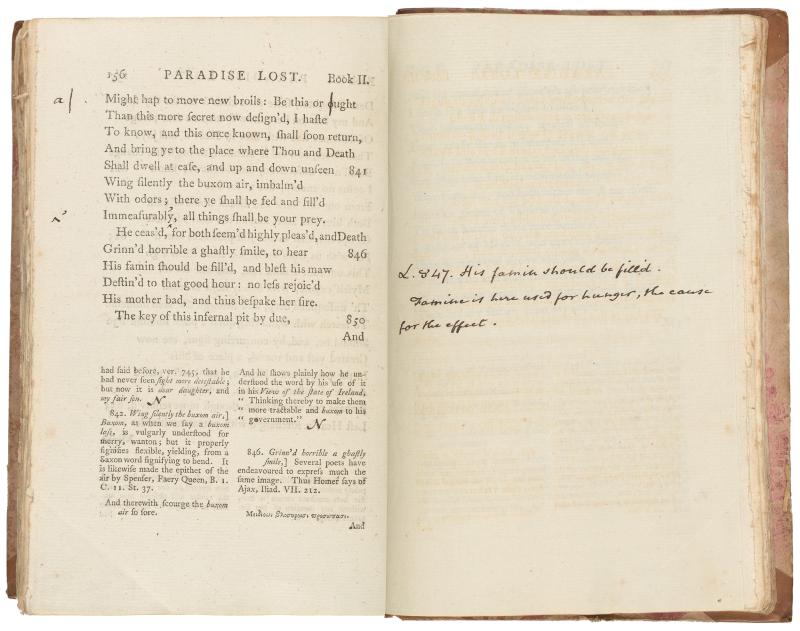 156 PARADISE LOST. Book II.
a/.
Might hap to move new broils: Be this or ought
Than this more secret now deſign'd, I haſte
To know, and this once known, ſhall ſoon return,
And bring ye to the place where Thou and Death
Shall dwell at eaſe, and up and down unſeen 841
Wing ſilently the buxom air, imbalm'd
With odors; there ye ſhall be fed and fill'd
Immeaſurably, all things ſhall be your prey.
He ceas'd, for both ſeem'd highly pleas'd, and Death
Grinn'd horrible a ghaſtly ſmile, to hear 846
His famin ſhould be fill'd, and bleſt his maw
Deſtin'd to that good hour: no leſs rejoic'd
His mother bad, and thus beſpake her ſire.
The key of this infernal pit by due, 850
And
had ſaid before, ver. 745, that he
had never ſeen ſight more deteſtable;
but now it is dear daughter, and
my fair ſon. N
842. Wing ſilently the buxom air,]
Buxom, as when we ſay a buxom
laſs, is vulgarly underſtood for
merry, wanton; but it properly
ſignifies flexible, yielding, from a
Saxon word ſignifying to bend. It
is likewiſe made the epithet of the
air by Spenſer, Faery Queen, B. 1.
C. 11. St. 37.
And therewith ſcourge the buxom
air ſo ſore.
And he ſhows plainly how he un-
derſtood the word by his uſe of it
in his View of the ſtate of Ireland,
" Thinking thereby to make them
" more tractable and buxom to his
" government." N
846. Grinn'd horrible a ghaſtly
ſmile,] Several poets have
endeavoured to expreſs much the
ſame image. Thus Homer ſays of
Ajax, Iliad. VII. 212.
Μειδιοων βλοσυροισι προσωπασι.
And
L. 847. His famin should be fill'd.
Famine is here used for hunger, the cause
for the effect.